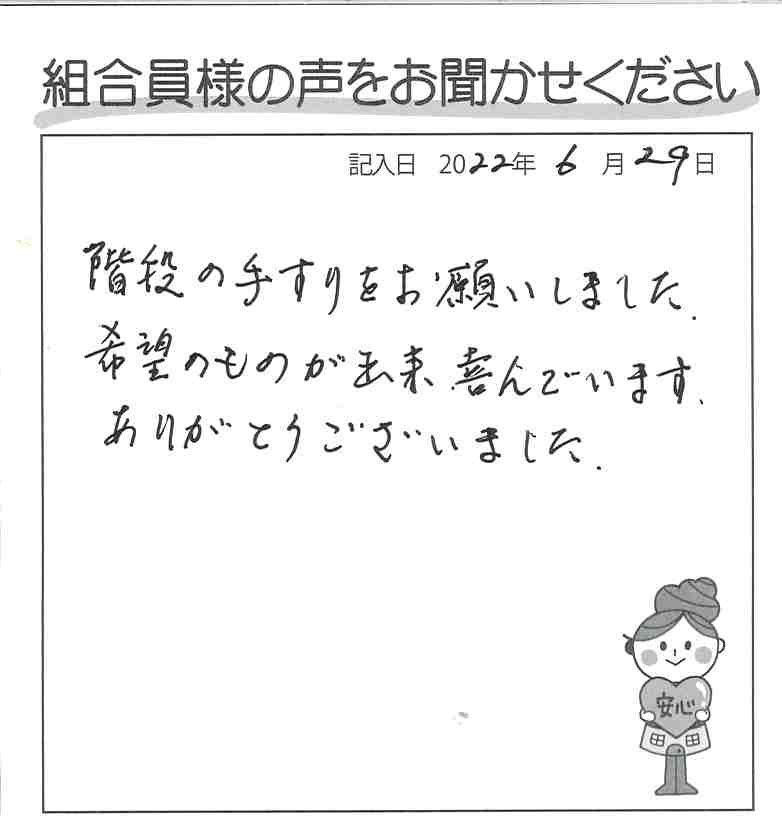 組合員様の声をお聞かせください
記入日 2022年 6月29日
階段の手すりをお願いしました.
希望のものが出来、喜んでいます.
ありがとうございました.
安心